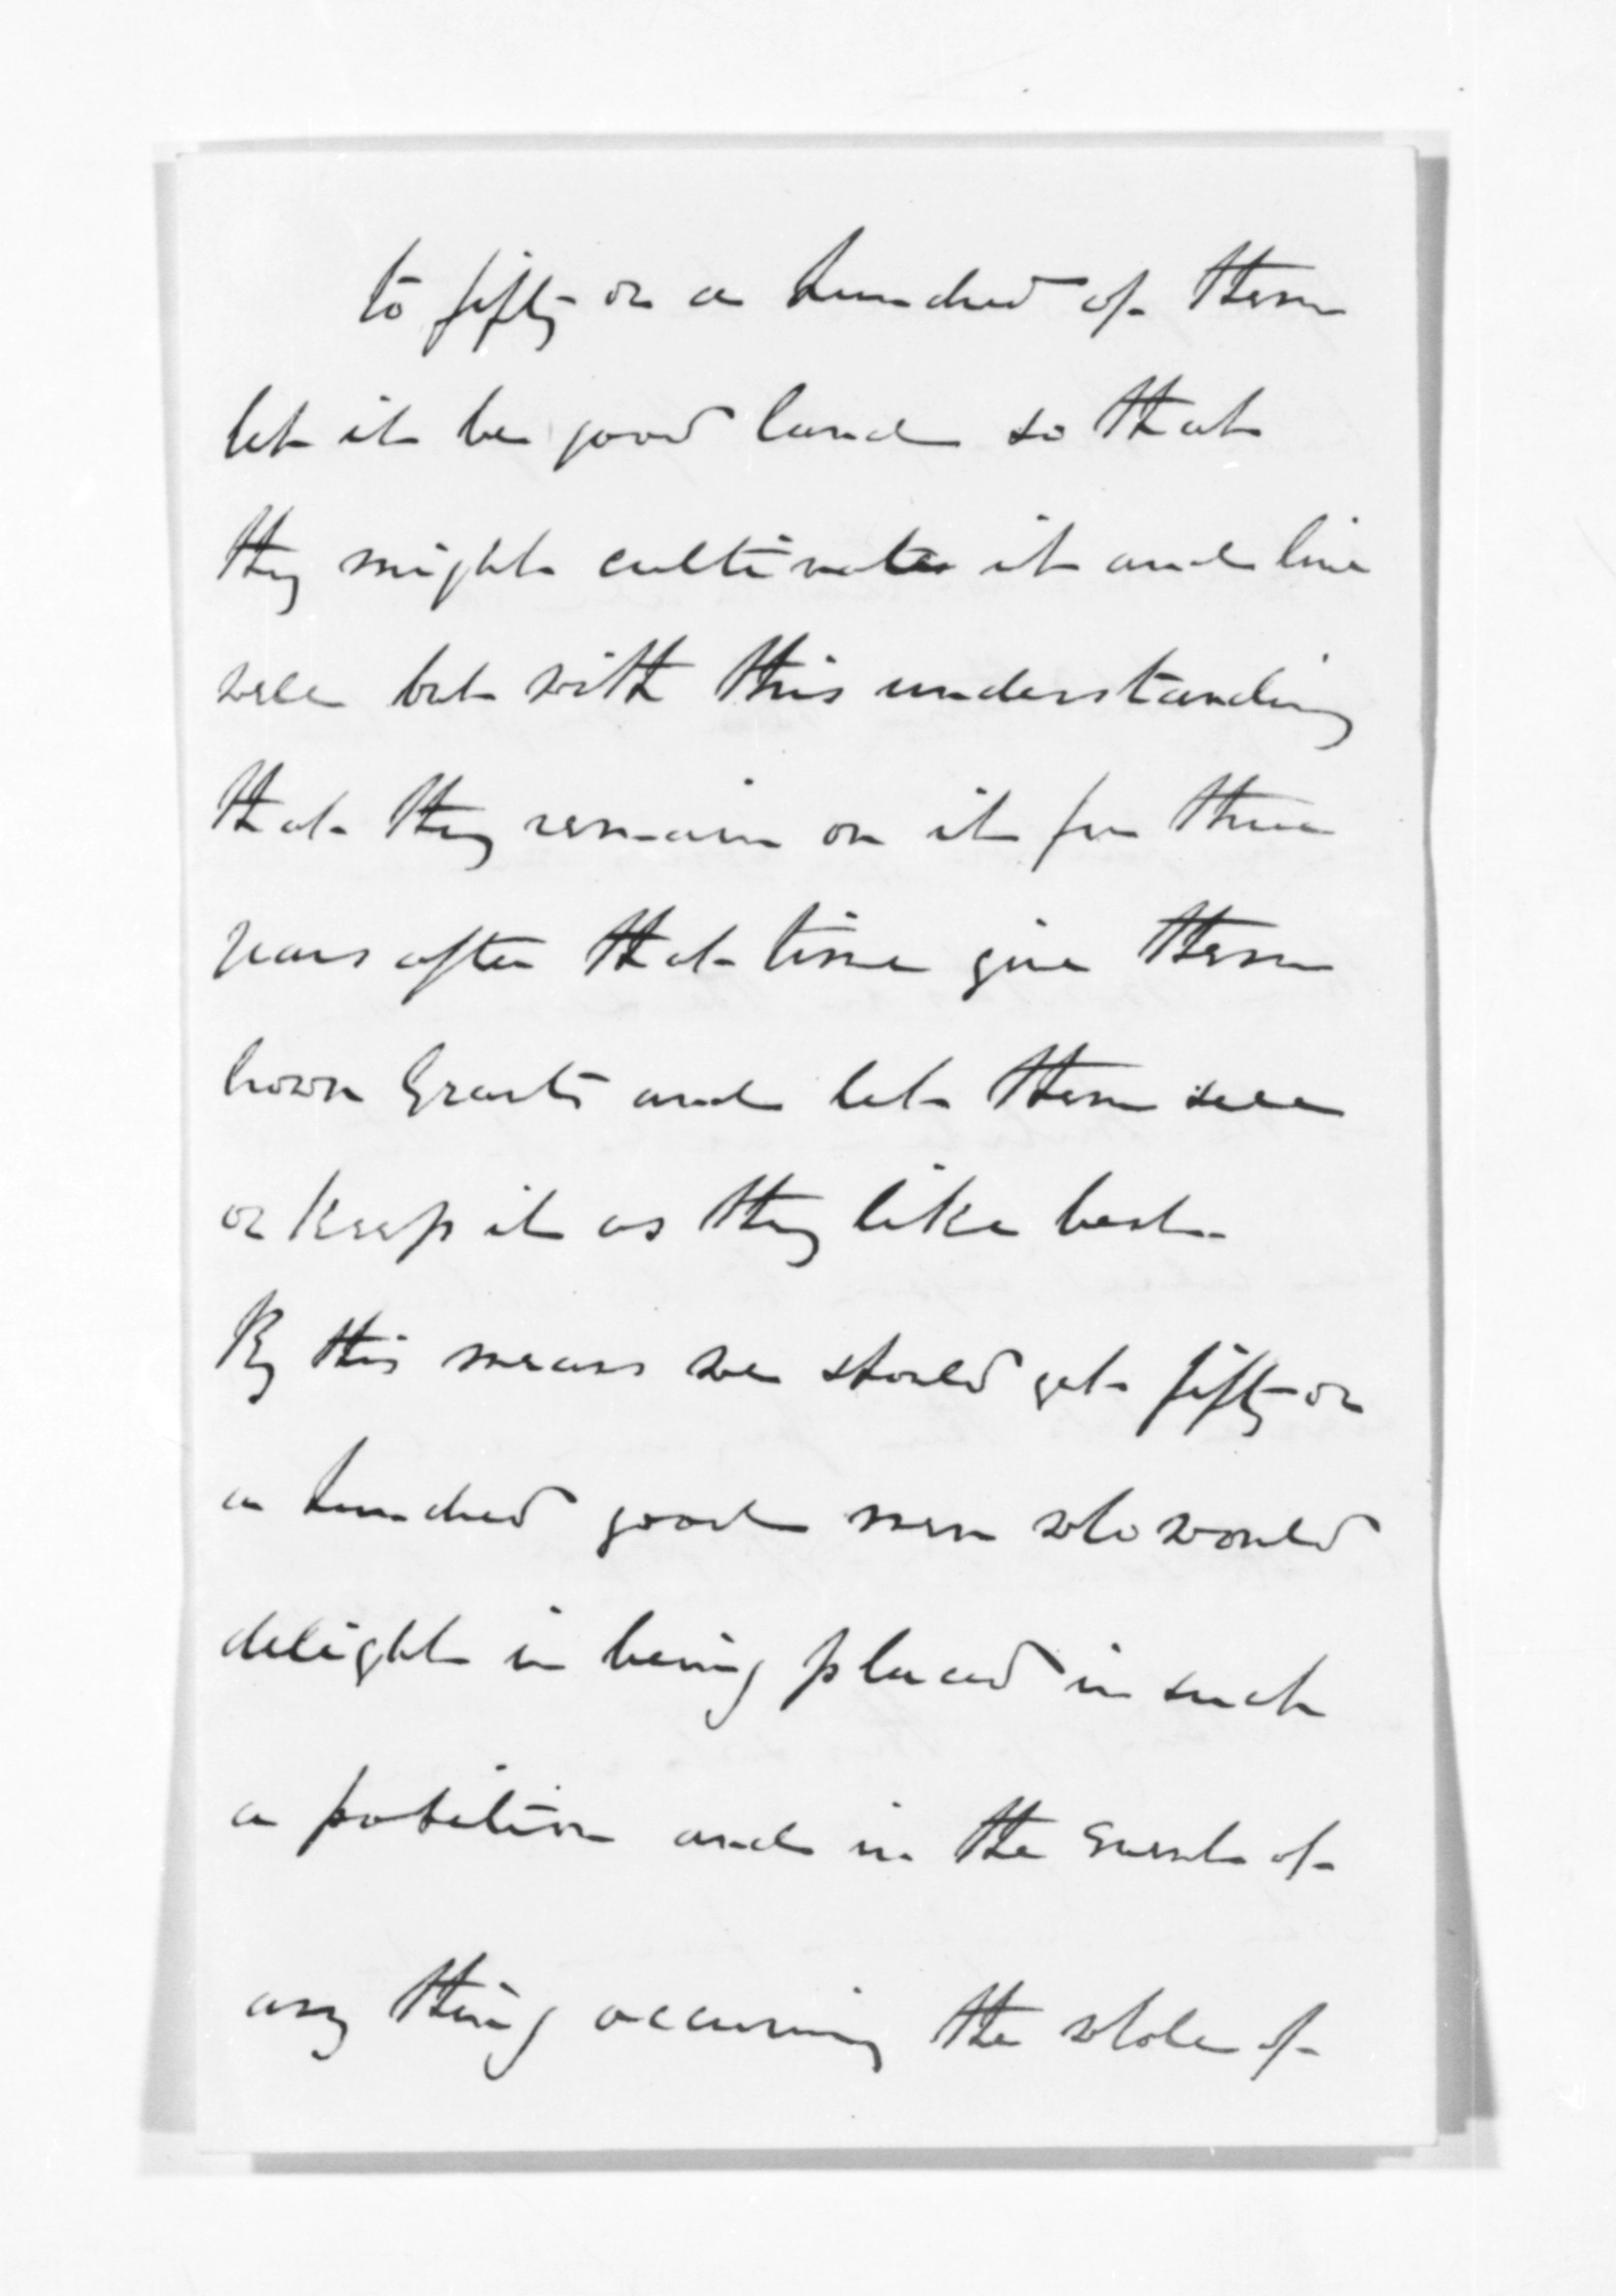 to fifty or a hundred of them
let it be good land so that
they might cultivate it and live
well but with this understanding
that they remain on it for three
years after that time give them
Crown Grants and let them sell
or keep it as they like best.
By this means we should get fifty or
a hundred good men who would
delight in being placed in such
a position and in the event of
any thing occuring the whole of